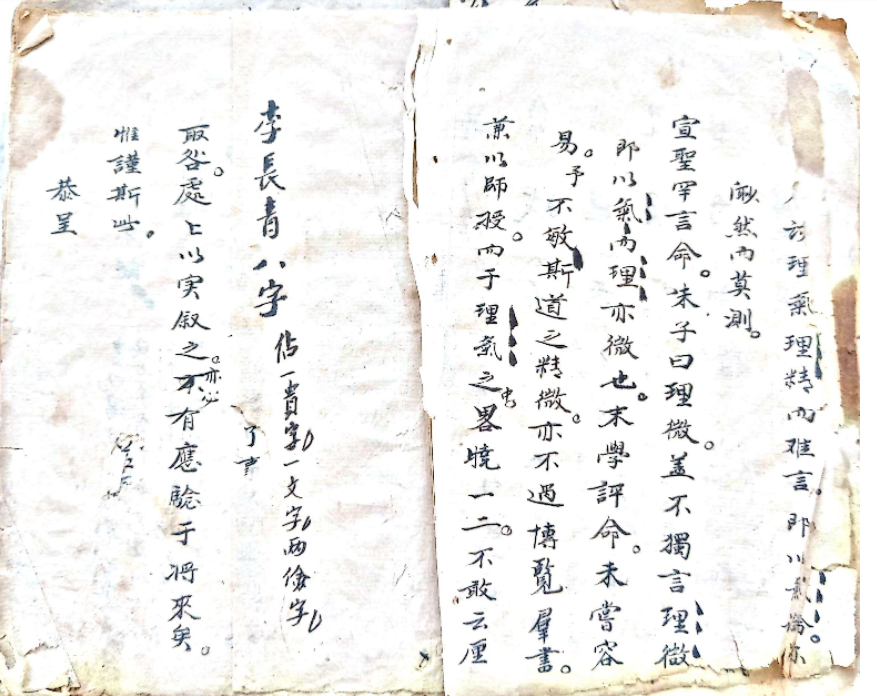 理氣理精而难言。即以氣論亦
然而莫測。
宣聖罕言命。朱子曰理微。盖不獨言理微
即以氣而理亦微也。末學評命。未嘗容
易。予不敏斯道之精微。亦不過博覽羣書。
兼以師授。而于理氣之中畧曉一二。不敢云厘
李長青八字 佔一貴字一文字兩儉字
了事
取咎處上以实叙之。亦必有應驗于将來矣。
惟謹斯此。
恭呈